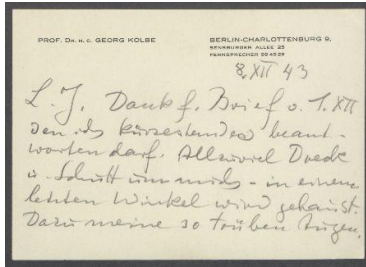 PROF. DR. H. C. GEORG KOLBE
BERLIN-CHARLOTTENBURG 9.
SENSBURGER ALLEE 25
FERNSPRECHER
8. XII 43
L. J. Dank f. Brief v. 1. XII
den ich kürzestens beant-
worten darf. Allzuviel Dreck
u. Schutt um mich - in einem
letzten Winkel wird gehaust.
Dazu meine so trüben Augen.